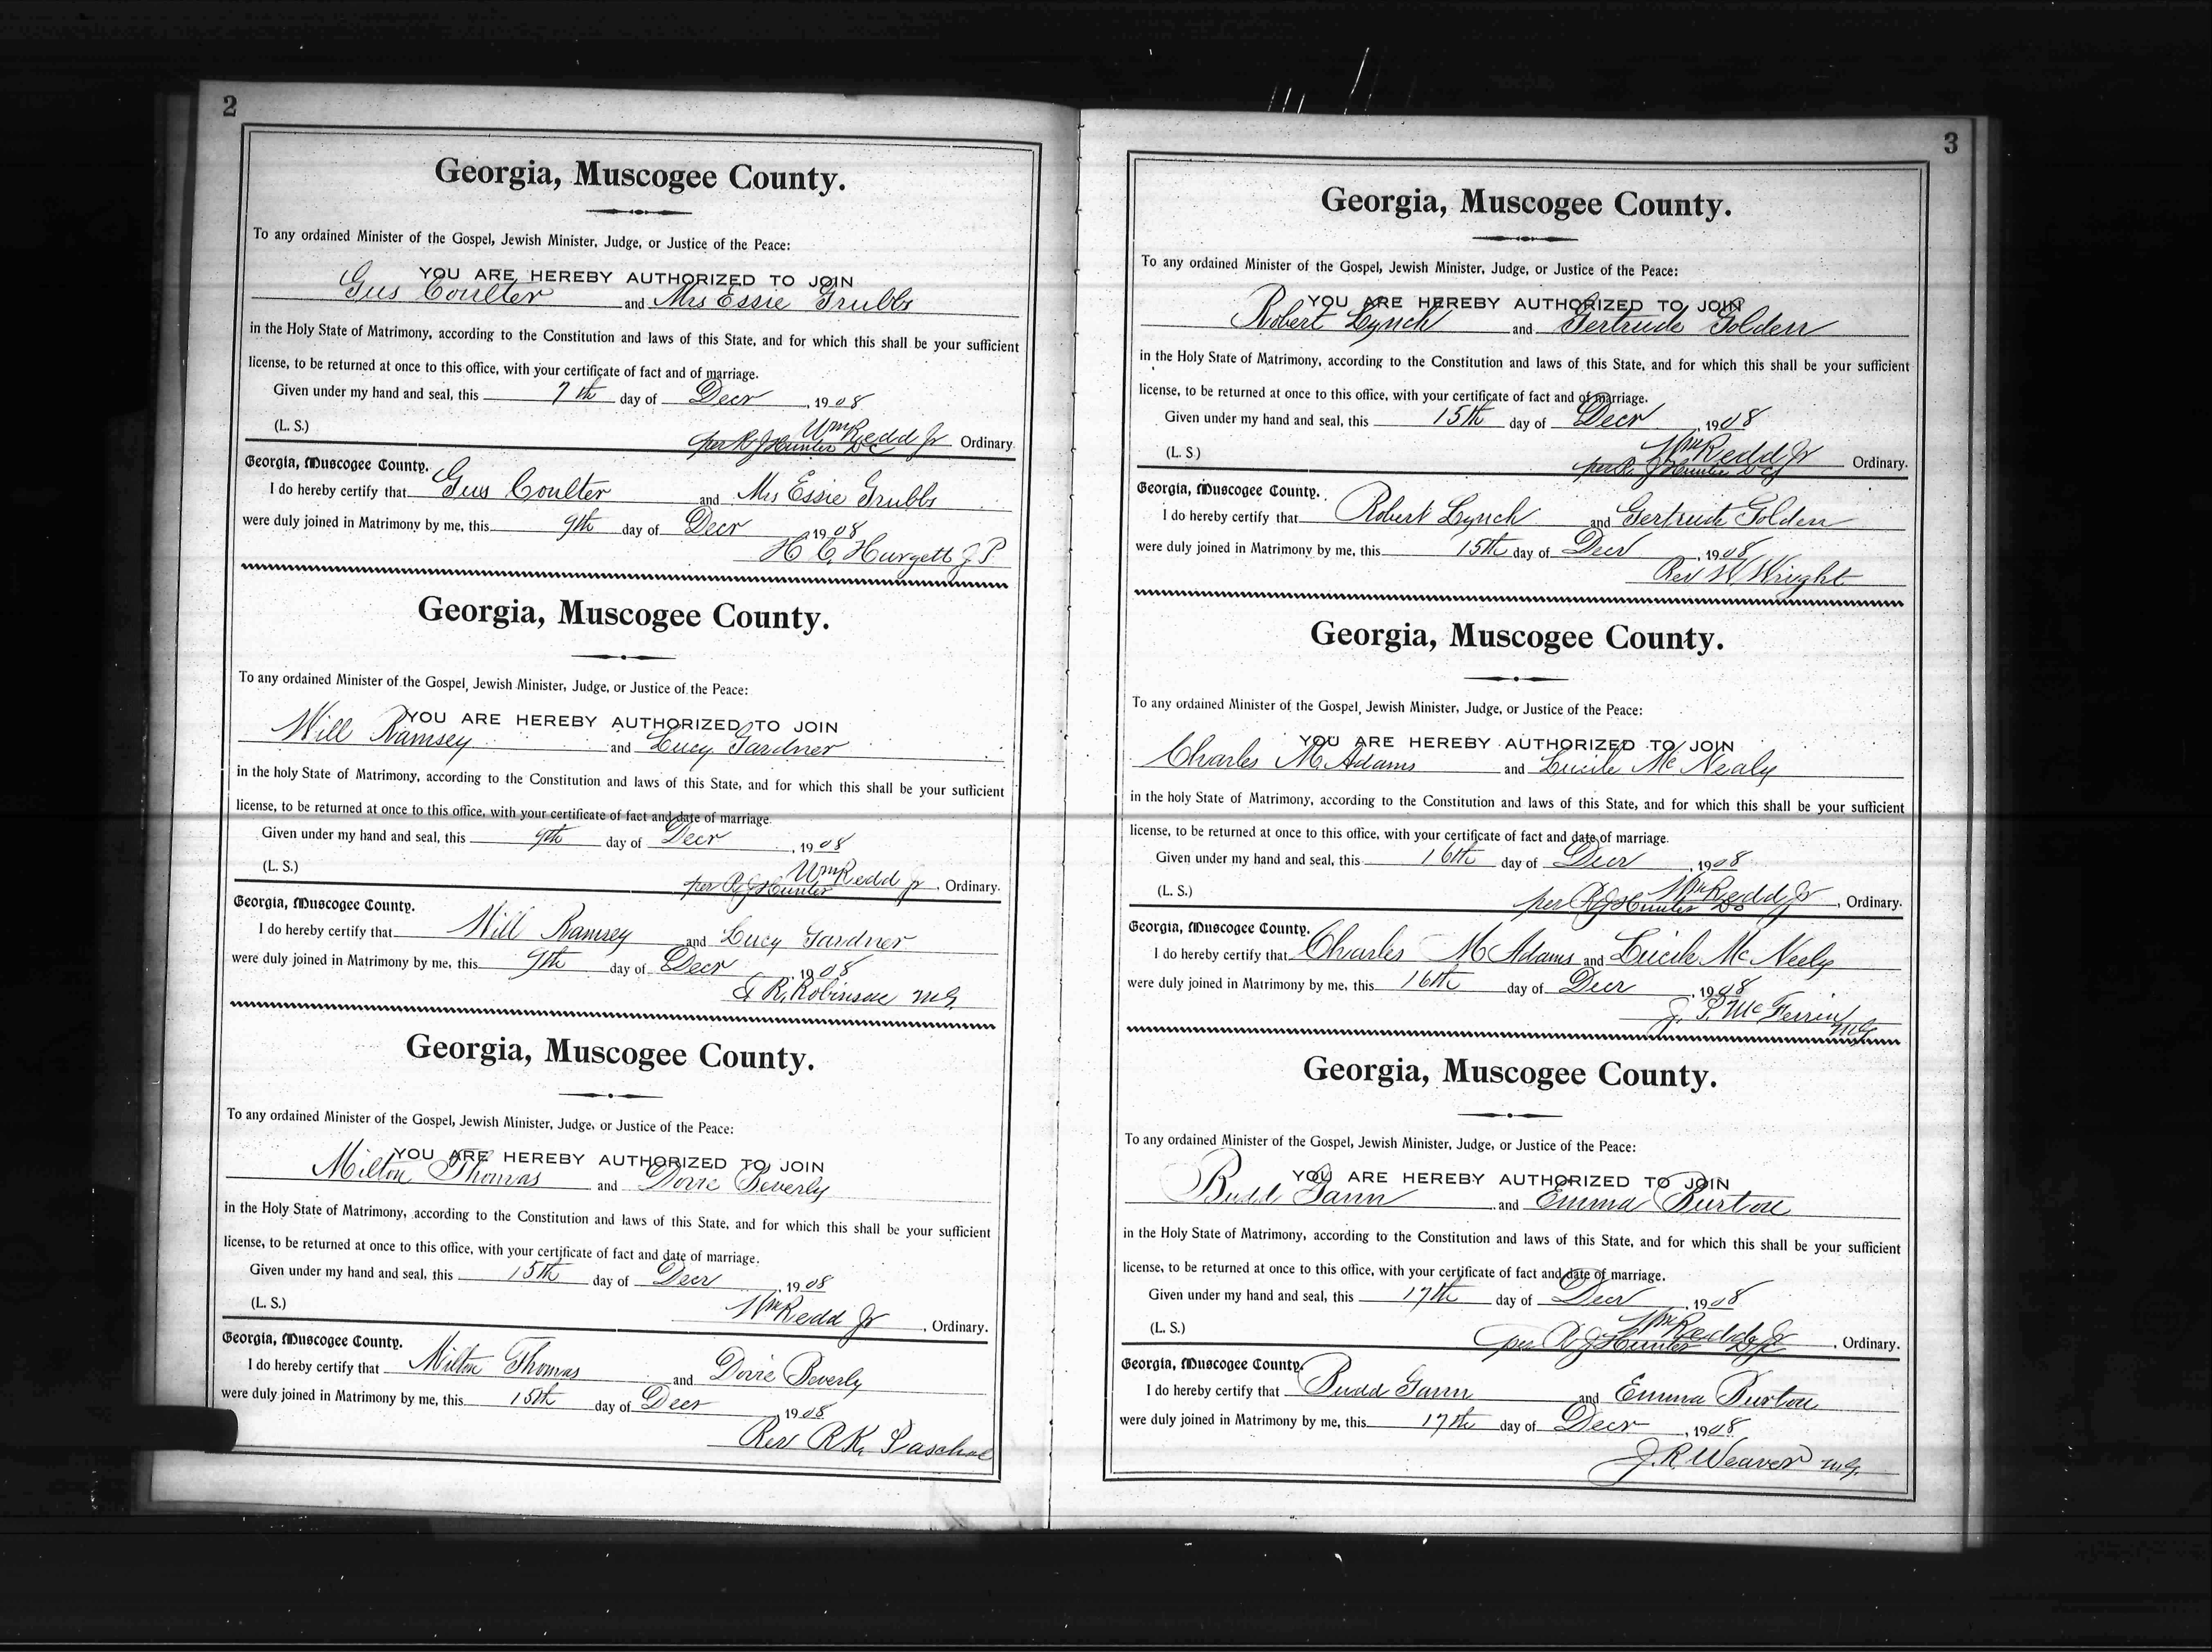 2
Georgia, Muscogee County.
To any ordained Minister of the Gospel, Jewish Minister, Judge, or Justice of the Peace:
YOU ARE HEREBY AUTHORIZED TO JOIN
Gus Coulter and Mrs Essie Grubbs
in the Holy State of Matrimony, according to the Constitution and laws of this State, and for which this shall be your sufficient
license, to be returned at once to this office, with your certificate of fact and of marriage.
Given under my hand and seal, this 7th day of Decr , 1908
(L. S.) Wm Redd Jr Ordinary.
per R J Hunter DC
Georgia, Muscogee County.
I do hereby certify that Gus Coulter and Mrs Essie Grubbs
were duly joined in Matrimony by me, this 9th day of Decr 1908
H C Hurgett J P
Georgia, Muscogee County.
To any ordained Minister of the Gospel, Jewish Minister, Judge, or Justice of the Peace:
YOU ARE HEREBY AUTHORIZED TO JOIN
Will Ramsey and Lucy Gardner
in the holy State of Matrimony, according to the Constitution and laws of this State, and for which this shall be your sufficient
license, to be returned at once to this office, with your certificate of fact and date of marriage.
Given under my hand and seal, this 9th day of Decr , 1908
(L. S.) Wm Redd Jr , Ordinary.
per R J Hunter
Georgia, Muscogee County.
I do hereby certify that Will Ramsey and Lucy Gardner
were duly joined in Matrimony by me, this 9th day of Decr , 1908
R. Robinson M G
Georgia, Muscogee County.
To any ordained Minister of the Gospel, Jewish Minister, Judge, or Justice of the Peace:
YOU ARE HEREBY AUTHORIZED TO JOIN
Milton Thomas and Dovie Beverly
in the Holy State of Matrimony, according to the Constitution and laws of this State, and for which this shall be your sufficient
license, to be returned at once to this office, with your certificate of fact and date of marriage.
Given under my hand and seal, this 15th day of Decr , 1908
(L. S.) Wm Redd Jr , Ordinary.
Georgia, Muscogee County.
I do hereby certify that Milton Thomas and Dovie Beverly
were duly joined in Matrimony by me, this 15th day of Decr 1908
Rev R K. Paschal
3
Georgia, Muscogee County.
To any ordained Minister of the Gospel, Jewish Minister, Judge, or Justice of the Peace:
YOU ARE HEREBY AUTHORIZED TO JOIN
Robert Lynch and Gertrude Golden
in the Holy State of Matrimony, according to the Constitution and laws of this State, and for which this shall be your sufficient
license, to be returned at once to this office, with your certificate of fact and of marriage.
Given under my hand and seal, this 15th day of Decr , 1908
(L. S.) Wm Redd Jr Ordinary.
per R J Hunter DC
Georgia, Muscogee County.
I do hereby certify that Robert Lynch and Gertrude Golden
were duly joined in Matrimony by me, this 15th day of Decr , 1908
Rev W Wright
Georgia, Muscogee County.
To any ordained Minister of the Gospel, Jewish Minister, Judge, or Justice of the Peace:
YOU ARE HEREBY AUTHORIZED TO JOIN
Charles M. Adams and Lucile Mc Nealy
in the holy State of Matrimony, according to the Constitution and laws of this State, and for which this shall be your sufficient
license, to be returned at once to this office, with your certificate of fact and date of marriage.
Given under my hand and seal, this 16th day of Decr , 1908
(L. S.) Wm Redd Jr , Ordinary.
per R J Hunter DC
Georgia, Muscogee County.
I do hereby certify that Charles M Adams and Lucile Mc Neely
were duly joined in Matrimony by me, this 16th day of Decr , 1908
J. P. McFerrin
M G
Georgia, Muscogee County.
To any ordained Minister of the Gospel, Jewish Minister, Judge, or Justice of the Peace:
YOU ARE HEREBY AUTHORIZED TO JOIN
Budd Gann and Emma Burton
in the Holy State of Matrimony, according to the Constitution and laws of this State, and for which this shall be your sufficient
license, to be returned at once to this office, with your certificate of fact and date of marriage.
Given under my hand and seal, this 17th day of Decr , 1908
(L. S.) Wm Redd Jr , Ordinary.
per R J Hunter DC
Georgia, Muscogee County.
I do hereby certify that Budd Gann and Emma Burton
were duly joined in Matrimony by me, this 17th day of Decr , 1908
J. R. Weaver M G.